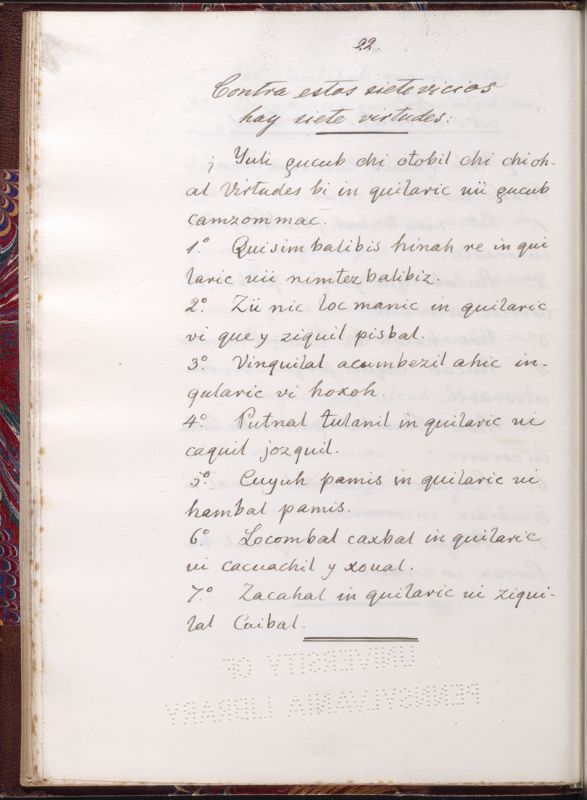 22.
Contra estos siete vicios
hay siete virtudes:
¡ Yuli çucub chi otobil chi chioh-
al Virtudes bi in quilaric vii çucub
camzommac.
1º Quisin balibis hinah re in qui
laric vii nimtez balibiz.
2º Zii nic loc manic in quilaric
vi que y ziquil pisbal.
3º Vinquilal acumbezil ahic in-
qularic vi hoxoh.
4º Putnal tulanil in quilaric vi
caquil jozquil.
5º Cuyuh pamis in quilaric vi
hambal pamis.
6º Locombal caxbal in quilaric
vi cacuachil y xoual.
7º Zacahal in quilaric vi ziqui-
lal Caibal.
UNIVERSITY OF
PENNSYLVANIA LIBRARY